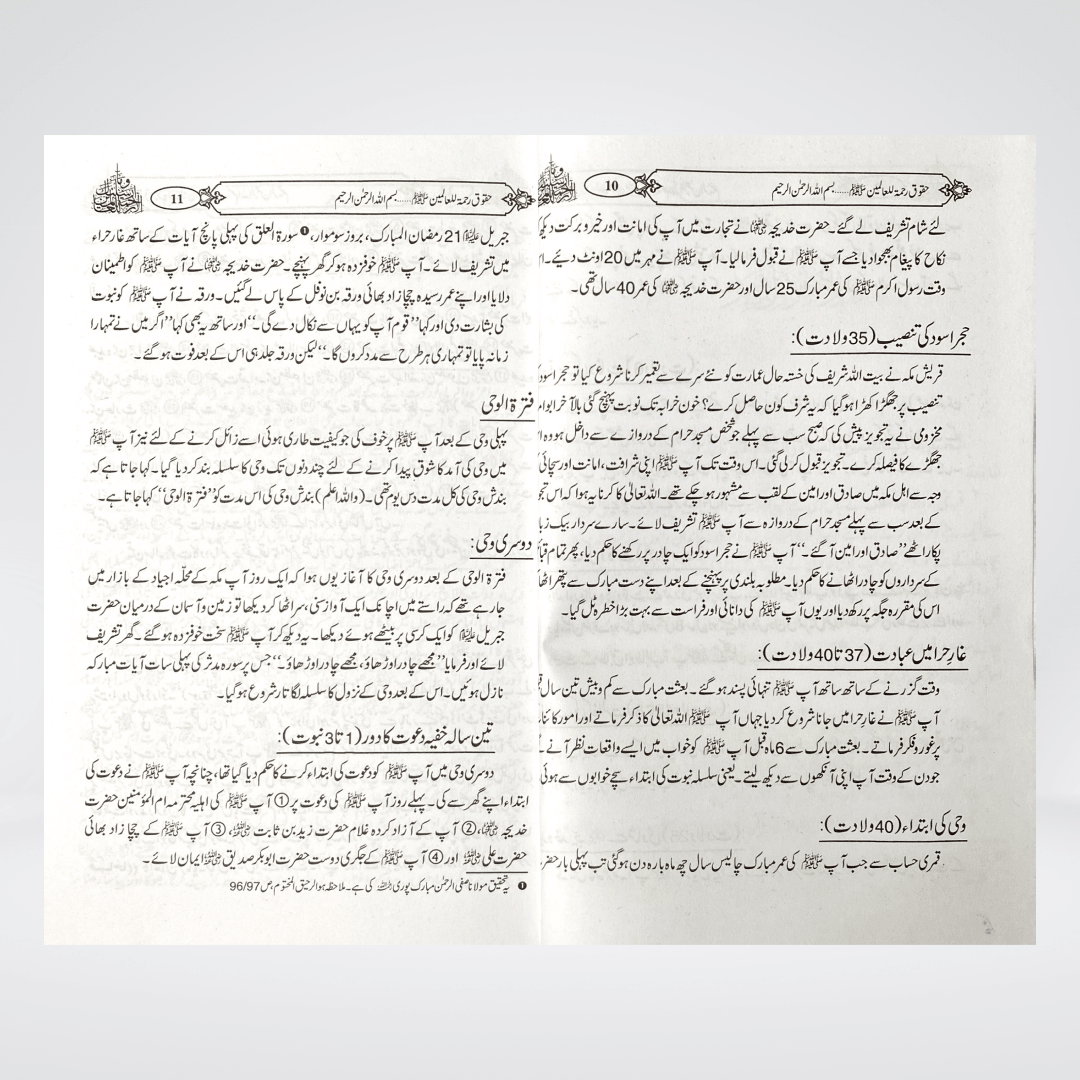 حقوق رحمۃ للعالمین ﷺ......بسم اللہ الرحمٰن الرحیم
10
لئے شام تشریف لے گئے۔ حضرت خدیجہ ؓ نے تجارت میں آپ کی امانت اور خیر و برکت دیکھ
نکاح کا پیغام بھجوا دیا جسے آپ ﷺ نے قبول فرما لیا۔ آپ ﷺ نے مہر میں 20 اونٹ دیئے۔
وقت رسول اکرم ﷺ کی عمر مبارک 25 سال اور حضرت خدیجہ ؓ کی عمر 40 سال تھی۔
حجر اسود کی تنصیب (35 ولادت):
قریش مکہ نے بیت اللہ شریف کی خستہ حال عمارت کو نئے سرے سے تعمیر کرنا شروع کیا تو حجر اسود
تنصیب پر جھگڑا کھڑا ہو گیا کہ یہ شرف کون حاصل کرے؟ خون خرابہ تک نوبت پہنچ گئی بالآخر ابوامـ
مخزومی نے یہ تجویز پیش کی کہ صبح سب سے پہلے جو شخص مسجد حرام کے دروازے سے داخل ہو وہ
جھگڑے کا فیصلہ کرے۔ تجویز قبول کر لی گئی۔ اس وقت تک آپ ﷺ اپنی شرافت، امانت اور سچائی
وجہ سے اہل مکہ میں صادق اور امین کے لقب سے مشہور ہو چکے تھے۔ اللہ تعالیٰ کا کرنا یہ ہوا کہ اس
کے بعد سب سے پہلے مسجد حرام کے دروازہ سے آپ ﷺ تشریف لائے۔ سارے سردار بیک
پکار اٹھے ’’صادق اور امین آ گئے۔‘‘ آپ ﷺ نے حجر اسود کو ایک چادر پر رکھنے کا حکم دیا، پھر تمام
کے سرداروں کو چادر اٹھانے کا حکم دیا۔ مطلوبہ بلندی پر پہنچنے کے بعد اپنے دست مبارک سے پتھر اٹھا
اس کی مقررہ جگہ پر رکھ دیا اور یوں آپ ﷺ کی دانائی اور فراست سے بہت بڑا خطرہ ٹل گیا۔
غارِ حرا میں عبادت (37 تا 40 ولادت):
وقت گزرنے کے ساتھ ساتھ آپ ﷺ تنہائی پسند ہو گئے۔ بعثت مبارک سے کم و بیش تین سال
آپ ﷺ نے غارِ حرا میں جانا شروع کر دیا جہاں آپ ﷺ اللہ تعالیٰ کا ذکر فرماتے اور امور کائنا
پر غور و فکر فرماتے۔ بعثت مبارک سے 6 ماہ قبل آپ ﷺ کو خواب میں ایسے واقعات نظر آنے
جو دن کے وقت آپ اپنی آنکھوں سے دیکھ لیتے۔ یعنی سلسلہ نبوت کی ابتداء سچے خوابوں سے ہوئی
وحی کی ابتداء (40 ولادت):
قمری حساب سے جب آپ ﷺ کی عمر مبارک چالیس سال چھ ماہ بارہ دن ہو گئی تب پہلی بار حضر
حقوق رحمۃ للعالمین ﷺ......بسم اللہ الرحمٰن الرحیم
11
جبریل ؑ 21 رمضان المبارک، بروز سوموار، ❶ سورۃ العلق کی پہلی پانچ آیات کے ساتھ غار حراء
میں تشریف لائے۔ آپ ﷺ خوفزدہ ہو کر گھر پہنچے۔ حضرت خدیجہ ؓ نے آپ ﷺ کو اطمینان
دلایا اور اپنے عمر رسیدہ چچا زاد بھائی ورقہ بن نوفل کے پاس لے گئیں۔ ورقہ نے آپ ﷺ کو نبوت
کی بشارت دی اور کہا ’’قوم آپ کو یہاں سے نکال دے گی۔‘‘ اور ساتھ یہ بھی کہا ’’اگر میں نے تمہارا
زمانہ پایا تو تمہاری ہر طرح سے مدد کروں گا۔‘‘ لیکن ورقہ جلد ہی اس کے بعد فوت ہو گئے۔
فترۃ الوحی
پہلی وحی کے بعد آپ ﷺ پر خوف کی جو کیفیت طاری ہوئی اسے زائل کرنے کے لئے نیز آپ ﷺ
میں وحی کی آمد کا شوق پیدا کرنے کے لئے چند دنوں تک وحی کا سلسلہ بند کر دیا گیا۔ کہا جاتا ہے کہ
بندش وحی کی کل مدت دس یوم تھی۔ (واللہ اعلم) بندش وحی کی اس مدت کو ’’فترۃ الوحی‘‘ کہا جاتا ہے۔
دوسری وحی:
فترۃ الوحی کے بعد دوسری وحی کا آغاز یوں ہوا کہ ایک روز آپ مکہ کے محلّہ اجیاد کے بازار میں
جا رہے تھے کہ راستے میں اچانک ایک آواز سنی، سر اٹھا کر دیکھا تو زمین و آسمان کے درمیان حضرت
جبریل ؑ کو ایک کرسی پر بیٹھے ہوئے دیکھا۔ یہ دیکھ کر آپ ﷺ سخت خوفزدہ ہو گئے۔ گھر تشریف
لائے اور فرمایا ’’مجھے چادر اوڑھاؤ، مجھے چادر اوڑھاؤ۔‘‘ جس پر سورہ مدثر کی پہلی سات آیات مبارکہ
نازل ہوئیں۔ اس کے بعد وحی کے نزول کا سلسلہ لگاتار شروع ہو گیا۔
تین سالہ خفیہ دعوت کا دور (1 تا 3 نبوت):
دوسری وحی میں آپ ﷺ کو دعوت کی ابتداء کرنے کا حکم دیا گیا تھا، چنانچہ آپ ﷺ نے دعوت کی
ابتداء اپنے گھر سے کی۔ پہلے روز آپ ﷺ کی دعوت پر ① آپ ﷺ کی اہلیہ محترمہ ام المؤمنین حضرت
خدیجہ ؓ، ② آپ کے آزاد کردہ غلام حضرت زید بن ثابت ؓ، ③ آپ ﷺ کے چچا زاد بھائی
حضرت علی ؓ اور ④ آپ ﷺ کے جگری دوست حضرت ابوبکر صدیق ؓ ایمان لائے۔
❶ یہ تحقیق مولانا صفی الرحمٰن مبارک پوری ؒ کی ہے۔ ملاحظہ ہو الرحیق المختوم ص 96/97